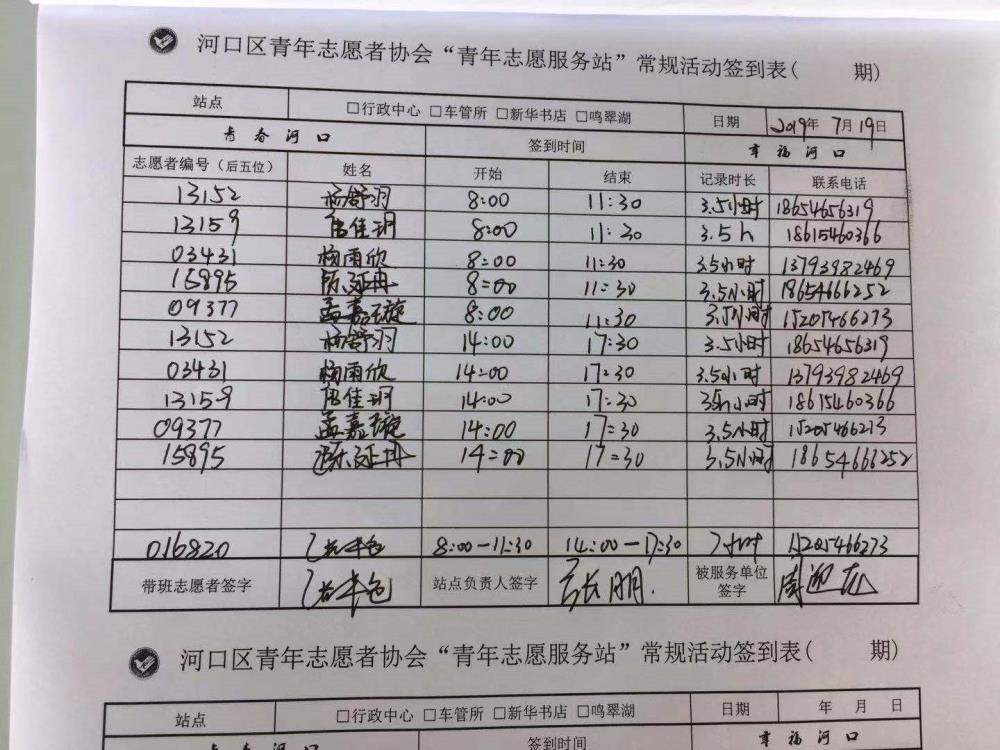 河口区青年志愿者协会“青年志愿服务站”常规活动签到表( 期)
站点 □行政中心 □车管所 □新华书店 □鸣翠湖 日期 2019年 7月19日
青春河口 签到时间 幸福河口
志愿者编号（后五位） 姓名 开始 结束 记录时长 联系电话
13152 杨舒羽 8:00 11:30 3.5小时 18654656319
13159 佳玥 8:00 11:30 3.5h 18615460366
03431 杨雨欣 8:00 11:30 3.5小时 13793982469
15895 陈延冉 8:00 11:30 3.5小时 18654666252
09377 孟嘉璇 8:00 11:30 3.5小时 15205466273
13152 杨舒羽 14:00 17:30 3.5小时 18654656319
03431 杨雨欣 14:00 17:30 3.5小时 13793982469
13159 佳玥 14:00 17:30 3.5小时 18615460366
09377 孟嘉璇 14:00 17:30 3.5小时 15205466273
15895 陈延冉 14:00 17:30 3.5小时 18654666252
016820 8:00-11:30 14:00-17:30 7小时 15205466273
带班志愿者签字 站点负责人签字 被服务单位签字
河口区青年志愿者协会“青年志愿服务站”常规活动签到表( 期)
站点 □行政中心 □车管所 □新华书店 □鸣翠湖 日期 年 月 日
青春河口 签到时间 幸福河口